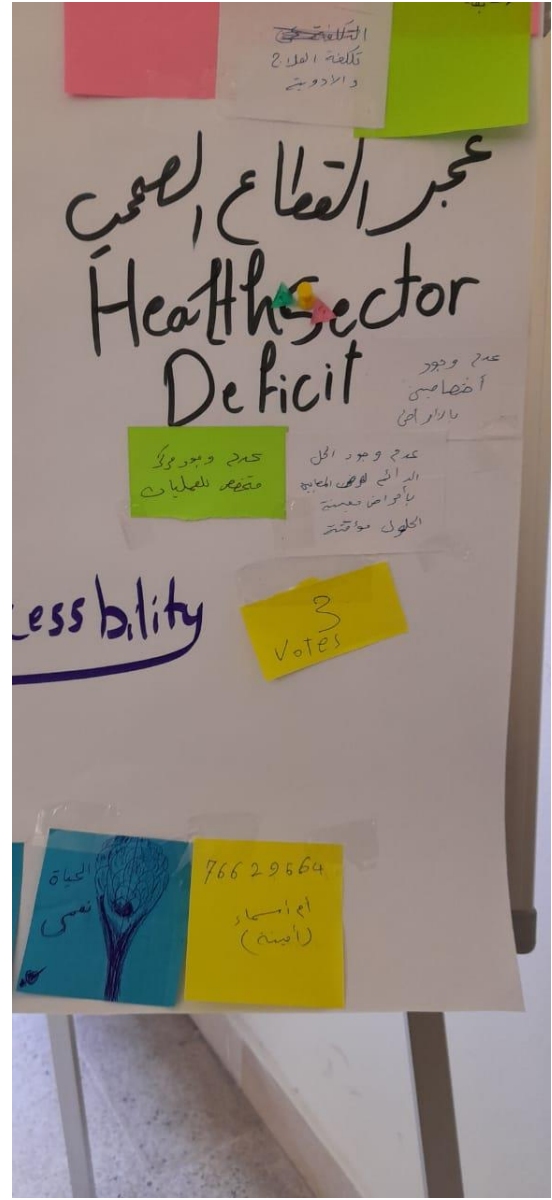 تكلفة العلاج
والادوية
عجز القطاع الصحي
Health Sector
Deficit
عدم وجود
أخصاصيين
بالامراض
عدم وجود مركز
متخصص للعمليات
عدم وجود الحل
الدائم
بأمراض معينة
الحلول مؤقتة
essbility
3
Votes
الحياة
76629564
أم أسماء
(أمينة)